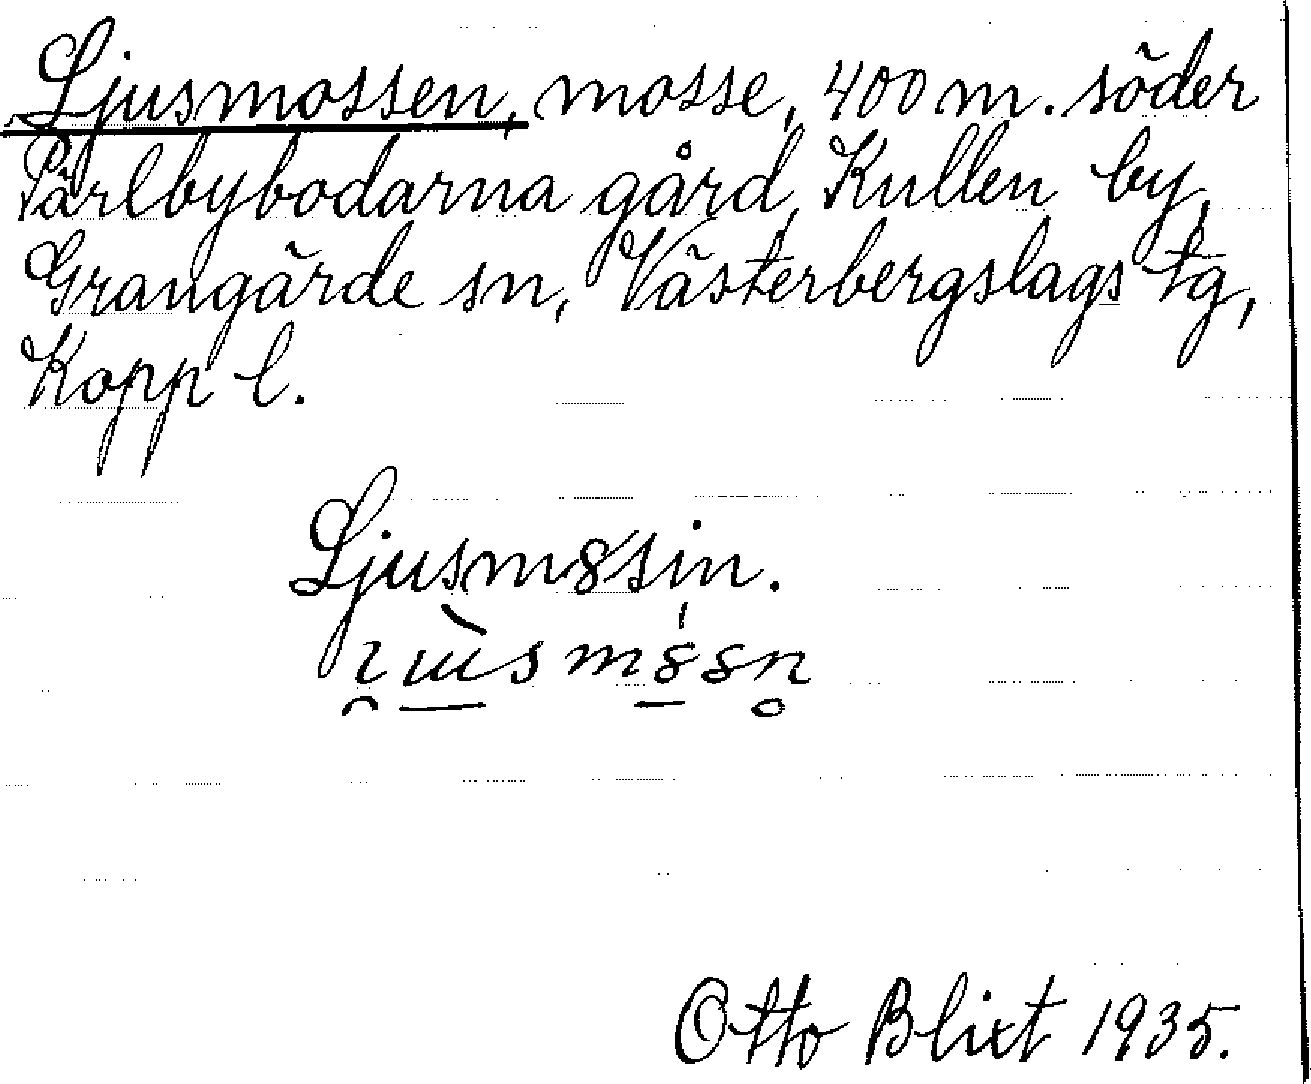 Ljusmossen, mosse, 400 m. söder
Pärlbybodarna gård, Kullen by,
Grangärde sn, Västerbergslags tg,
Kopp l.
Ljusm8sin.
Otto Blixt 1935.